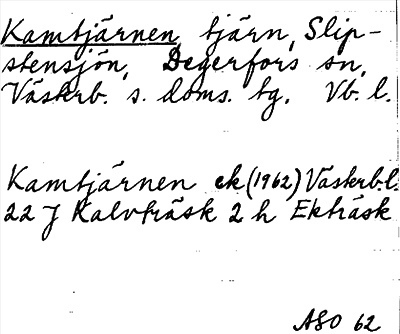 Kamtjärnen, tjärn, Slip-
stensjön, Degerfors sn,
Västerb. s. doms. tg. Vb. l.
Kamtjärnen ek (1962) Västerb.l.
22 J Kalvträsk 2 h Ekträsk
ASO 62